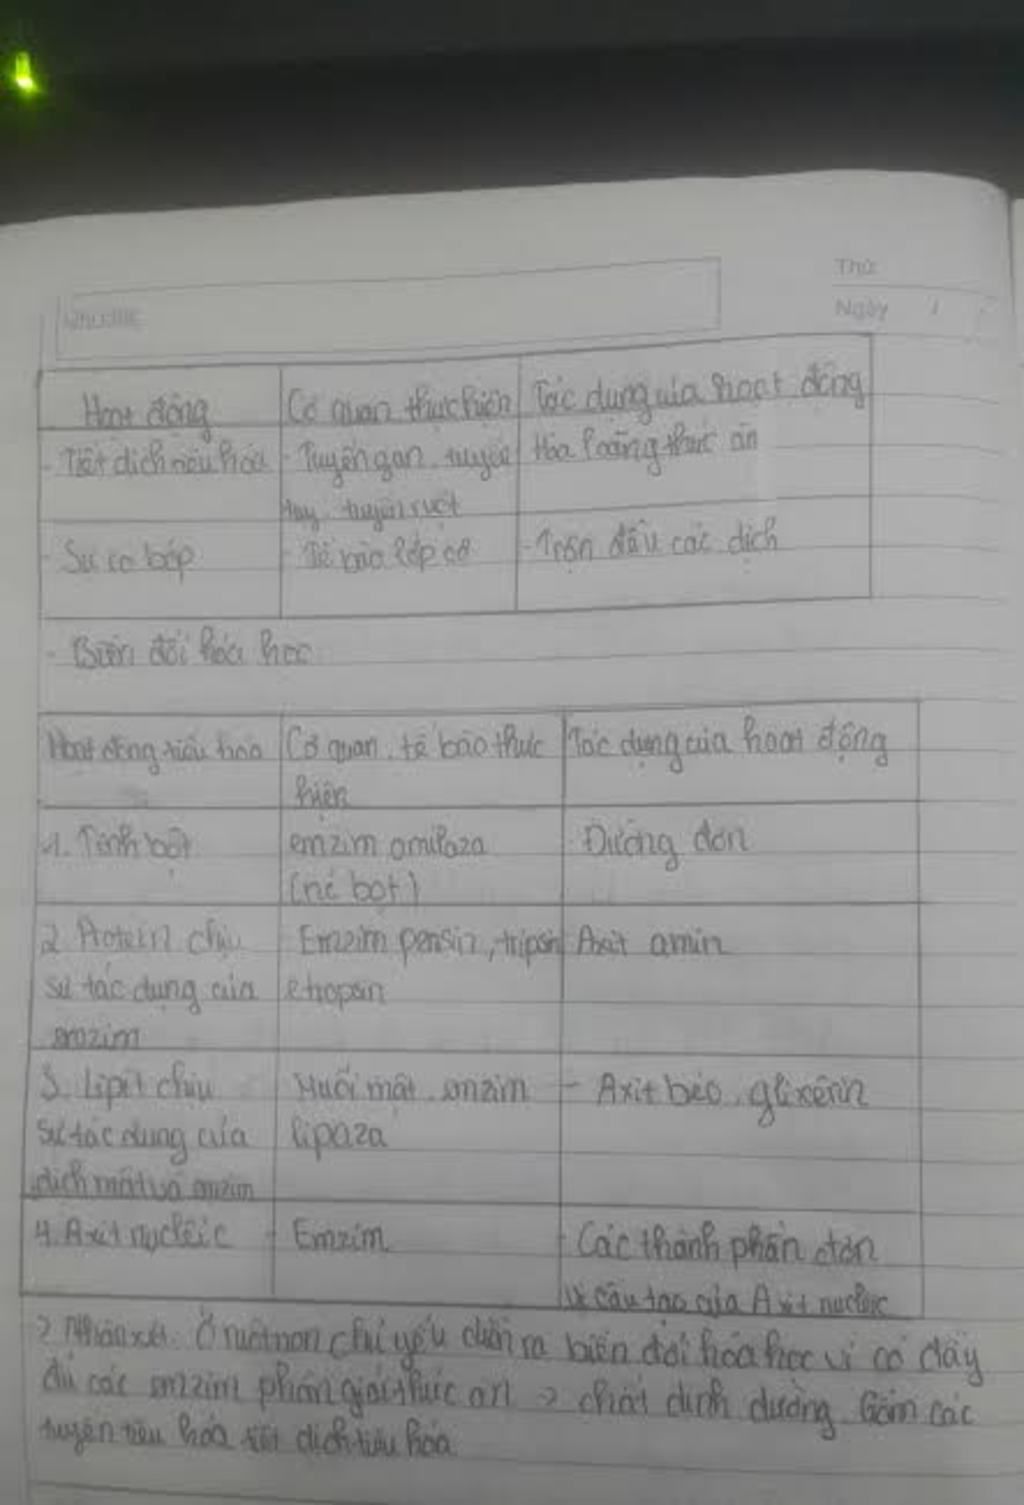 Thứ
Ngày /
Hoạt động
Cơ quan thực hiện
Tác dụng của hoạt động
- Tiết dịch tiêu hóa
- Tuyến gan, tuyến
tụy, tuyến ruột
Hòa loãng thức ăn
- Sự co bóp
- Tế bào lớp cơ
- Trộn đều các dịch
- Biến đổi hóa học
Hoạt động tiêu hóa
Cơ quan, tế bào thực
hiện
Tác dụng của hoạt động
1. Tinh bột
emzim amilaza
Đường đơn
2. Protein chịu
sự tác dụng của
emzim
Emzim pensin, tripsin
Axit amin
3. Lipit chịu
sự tác dụng của
dịch mật và emzim
Muối mật, emzim
lipaza
- Axit béo, glixêrin
4. Axit nuclêic
- Emzim
- Các thành phần đơn
vị cấu tạo của Axit nucleic
Nhận xét: Ở ruột non chủ yếu diễn ra biến đổi hóa học vì có đầy
đủ các emzim phân giải thức ăn → chất dinh dưỡng. Gồm các
tuyến tiêu hóa tiết dịch tiêu hóa